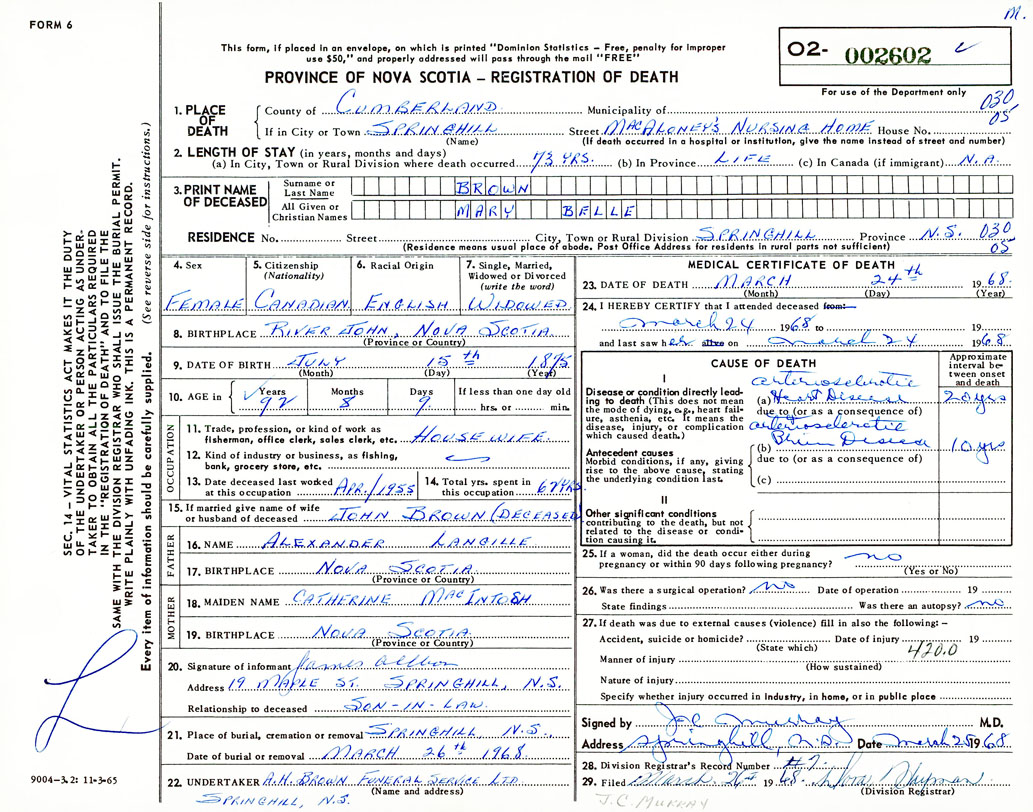 M.
FORM 6
This form, if placed in an envelope, on which is printed "Dominion Statistics – Free, penalty for improper
use $50," and properly addressed will pass through the mail "FREE"
PROVINCE OF NOVA SCOTIA – REGISTRATION OF DEATH
02- 002602
For use of the Department only
030
05
1. PLACE OF DEATH
County of CUMBERLAND Municipality of
If in City or Town SPRINGHILL Street MACALONEY'S NURSING HOME House No.
(Name) (If death occurred in a hospital or institution, give the name instead of street and number)
2. LENGTH OF STAY (in years, months and days)
(a) In City, Town or Rural Division where death occurred 73 YRS. (b) In Province LIFE (c) In Canada (if immigrant) N.A.
3. PRINT NAME OF DECEASED
Surname or Last Name BROWN
All Given or Christian Names MARY BELLE
RESIDENCE No. Street City, Town or Rural Division SPRINGHILL Province N.S. 030
05
(Residence means usual place of abode. Post Office Address for residents in rural parts not sufficient)
4. Sex FEMALE
5. Citizenship (Nationality) CANADIAN
6. Racial Origin ENGLISH
7. Single, Married, Widowed or Divorced (write the word) WIDOWED
8. BIRTHPLACE RIVER JOHN, NOVA SCOTIA
(Province or Country)
9. DATE OF BIRTH JUNY 15th 1875
(Month) (Day) (Year)
10. AGE in Years 92 Months 8 Days 9 If less than one day old
hrs. or min.
OCCUPATION
11. Trade, profession, or kind of work as
fisherman, office clerk, sales clerk, etc. HOUSEWIFE
12. Kind of industry or business, as fishing,
bank, grocery store, etc.
13. Date deceased last worked at this occupation APR./1955
14. Total yrs. spent in this occupation 62 YRS
15. If married give name of wife
or husband of deceased JOHN BROWN (DECEASED
FATHER
16. NAME ALEXANDER LANGILLE
17. BIRTHPLACE NOVA SCOTIA
(Province or Country)
MOTHER
18. MAIDEN NAME CATHERINE MACINTOSH
19. BIRTHPLACE NOVA SCOTIA
(Province or Country)
20. Signature of informant James
Address 19 MAPLE ST. SPRINGHILL, N.S.
Relationship to deceased SON-IN-LAW.
21. Place of burial, cremation or removal SPRINGHILL N.S.
Date of burial or removal MARCH 26th 1968
22. UNDERTAKER A.H. BROWN FUNERAL SERVICE LTD.
(Name and address)
SPRINGHILL, N.S.
MEDICAL CERTIFICATE OF DEATH
23. DATE OF DEATH MARCH 24th 1968.
(Month) (Day) (Year)
24. I HEREBY CERTIFY that I attended deceased from:
March 24 1968 to 19
and last saw her alive on March 24 1968
CAUSE OF DEATH
Approximate interval between onset and death
I
Disease or condition directly leading to death (This does not mean the mode of dying, e.g., heart failure, asthenia, etc. It means the disease, injury, or complication which caused death.)
arteriosclerotic
(a) Heart Disease 20 yrs
due to (or as a consequence of)
arteriosclerotic
(b) Disease 10 yrs
due to (or as a consequence of)
(c)
Antecedent causes
Morbid conditions, if any, giving rise to the above cause, stating the underlying condition last.
II
Other significant conditions
contributing to the death, but not related to the disease or condition causing it.
25. If a woman, did the death occur either during
pregnancy or within 90 days following pregnancy? no
(Yes or No)
26. Was there a surgical operation? no Date of operation 19
State findings Was there an autopsy? no
27. If death was due to external causes (violence) fill in also the following: –
Accident, suicide or homicide? Date of injury 19
(State which) 420.0
Manner of injury
(How sustained)
Nature of injury
Specify whether injury occurred in industry, in home, or in public place
Signed by J C Murray M.D.
Address Springhill, N.S. Date March 25 1968
28. Division Registrar's Record Number #7
29. Filed March 26 1968
(Division Registrar)
J.C. MURRAY
SEC. 14 – VITAL STATISTICS ACT MAKES IT THE DUTY
OF THE UNDERTAKER OR PERSON ACTING AS UNDER-
TAKER TO OBTAIN ALL THE PARTICULARS REQUIRED
IN THE "REGISTRATION OF DEATH" AND TO FILE THE
SAME WITH THE DIVISION REGISTRAR WHO SHALL ISSUE THE BURIAL PERMIT.
WRITE PLAINLY WITH UNFADING INK. THIS IS A PERMANENT RECORD.
Every item of information should be carefully supplied. (See reverse side for instructions.)
9004-3.2: 11-3-65